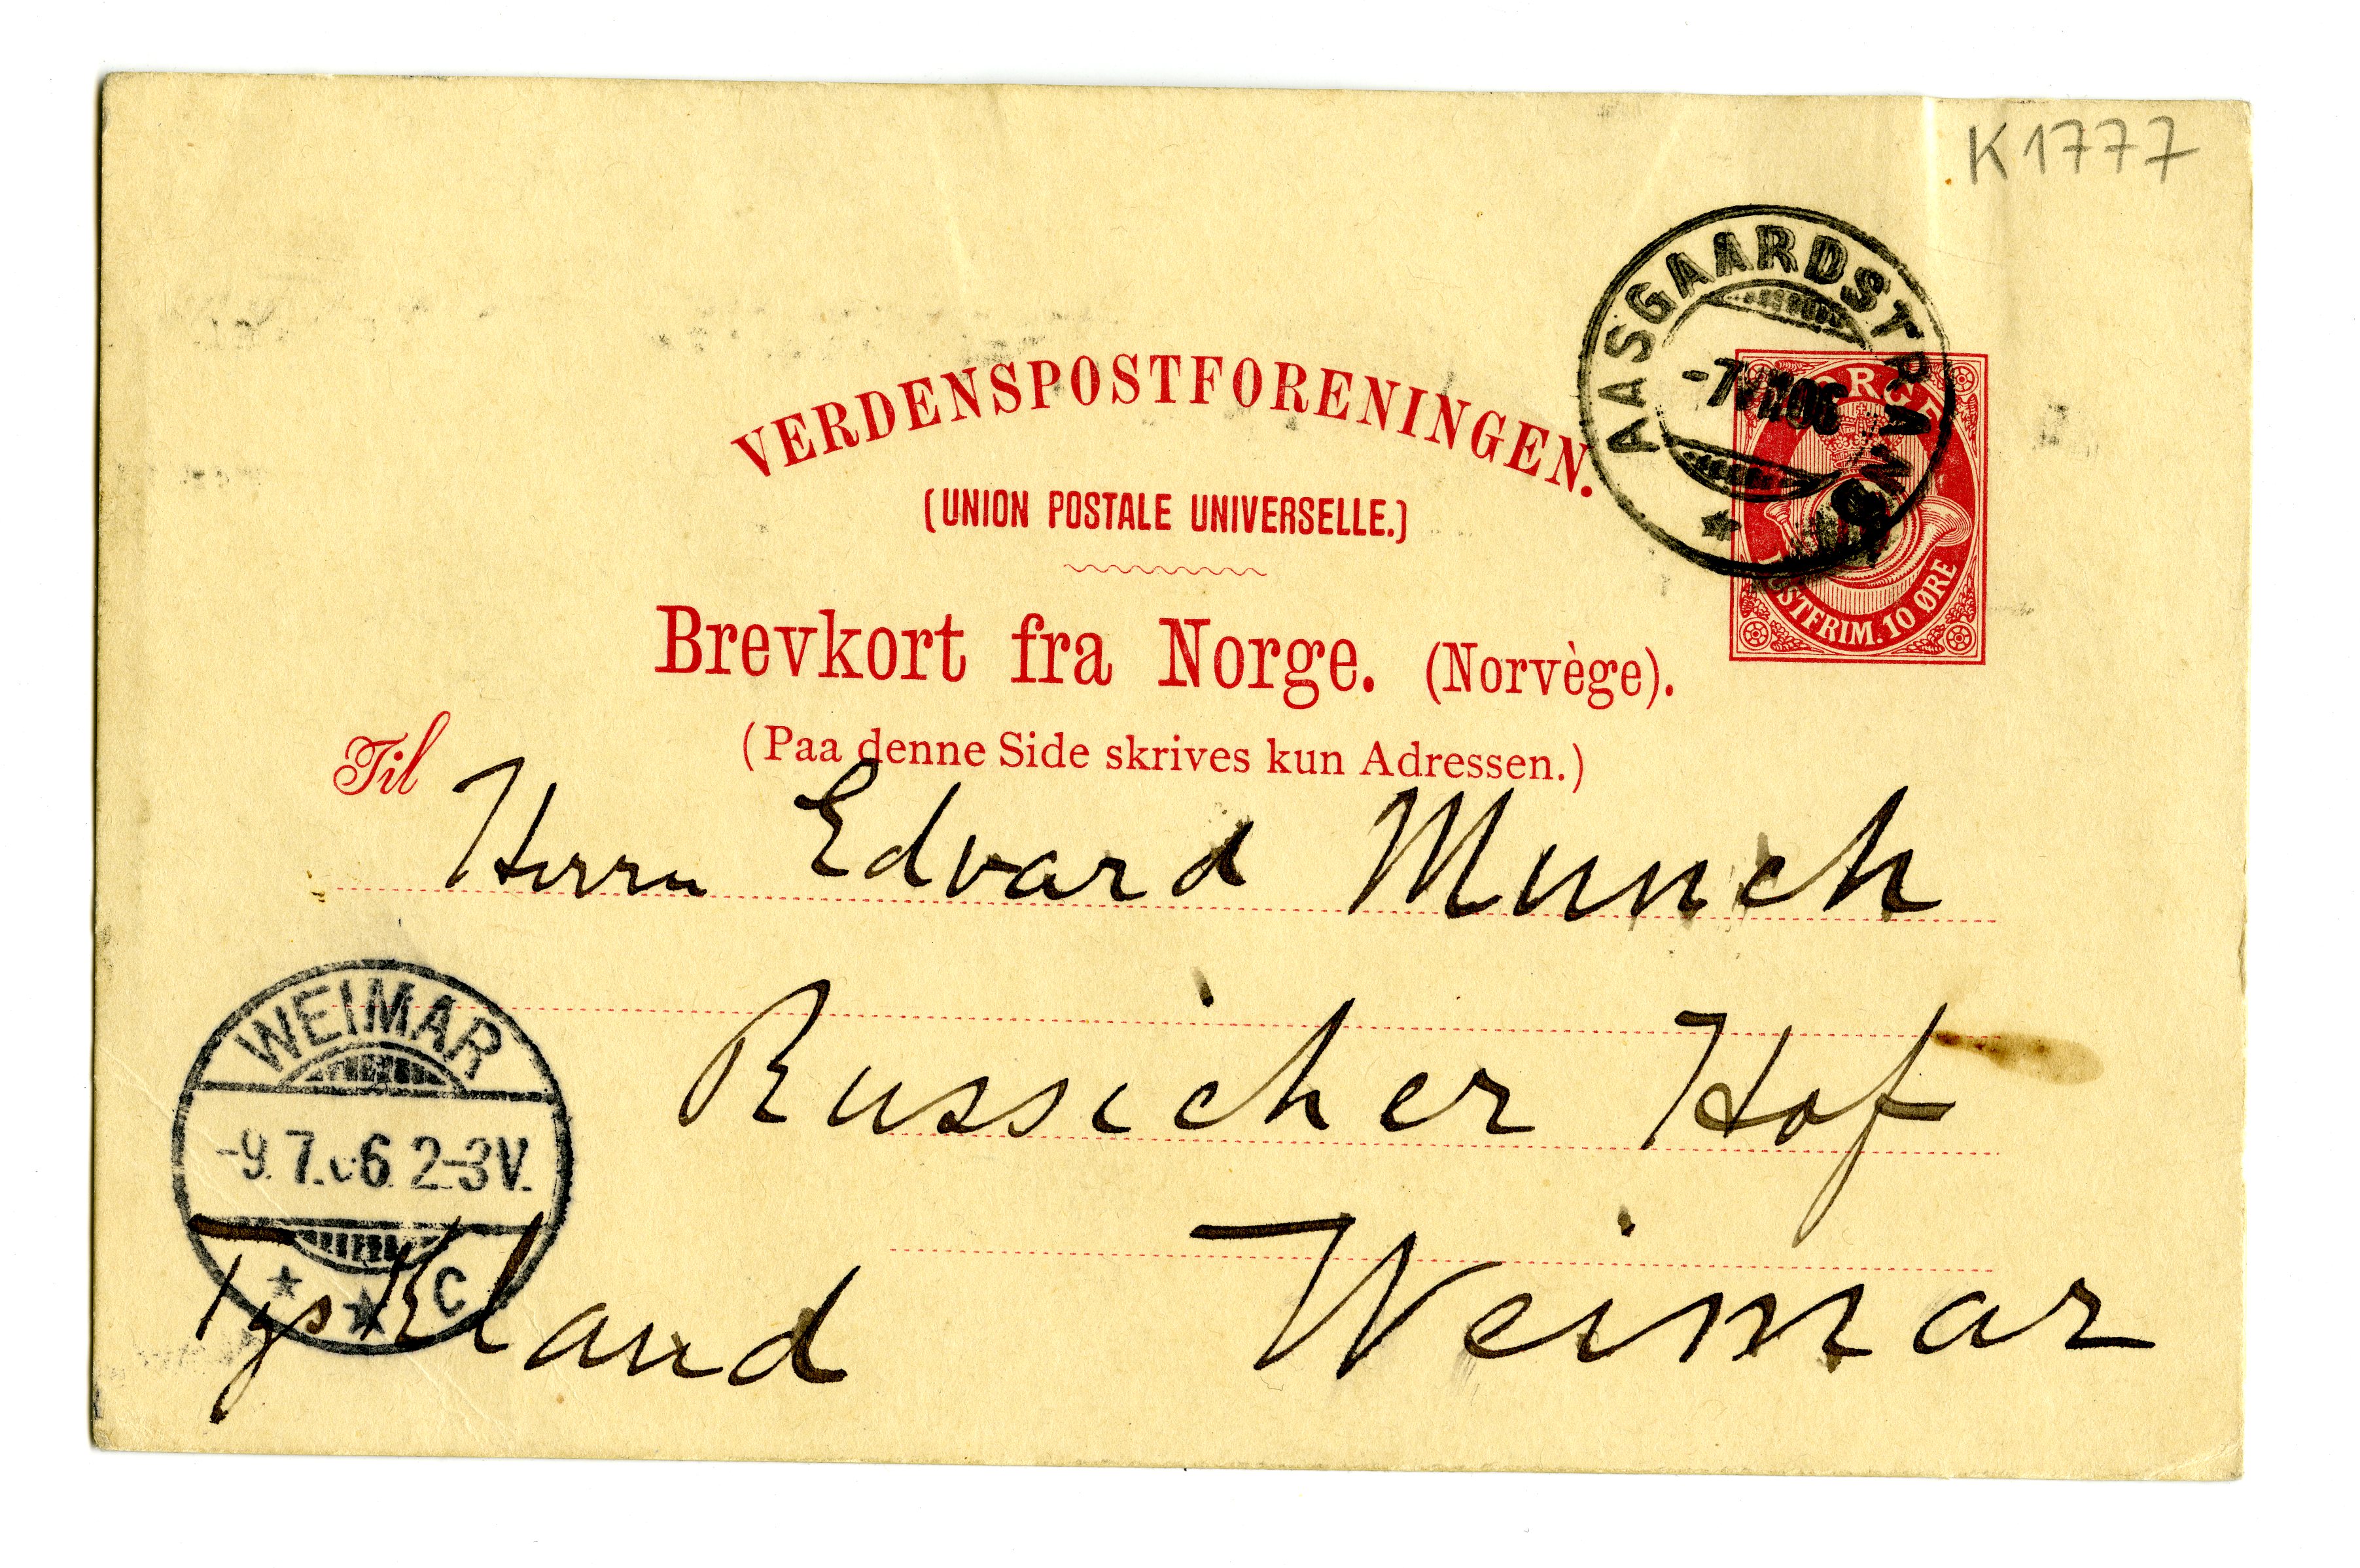 K1777
AASGAARDSTRAND
-7 VII 06
NORGE
POSTFRIM. 10 ØRE
VERDENSPOSTFORENINGEN.
(UNION POSTALE UNIVERSELLE.)
Brevkort fra Norge. (Norvège).
(Paa denne Side skrives kun Adressen.)
Til Herrn Edvard Munch
Russicher Hof
WEIMAR
-9.7.06. 2-3V.
C
Tyskland Weimar